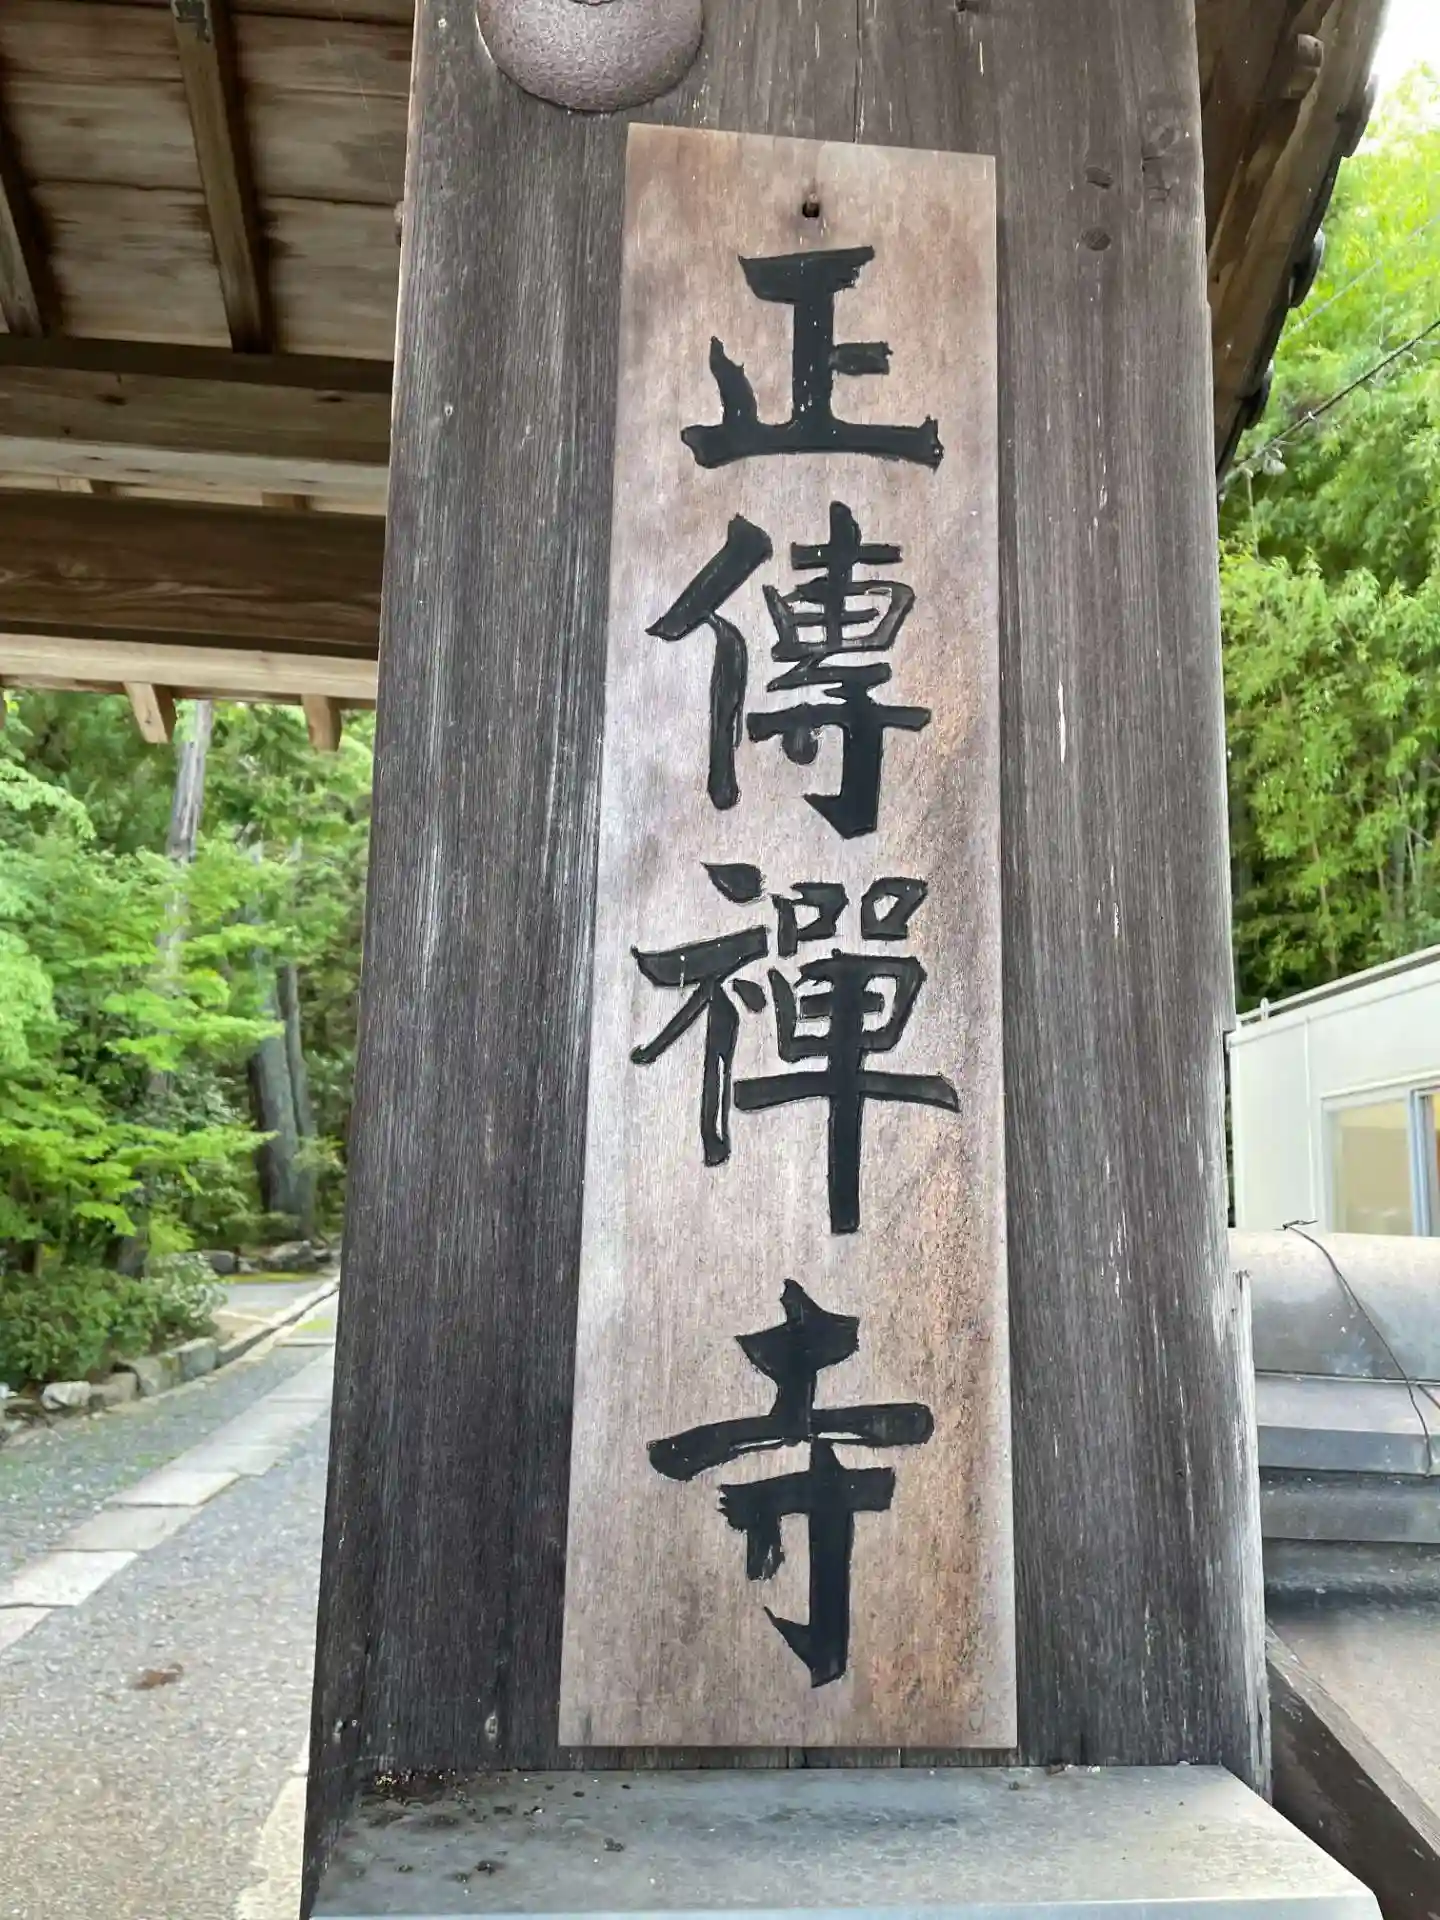 正傳禪寺